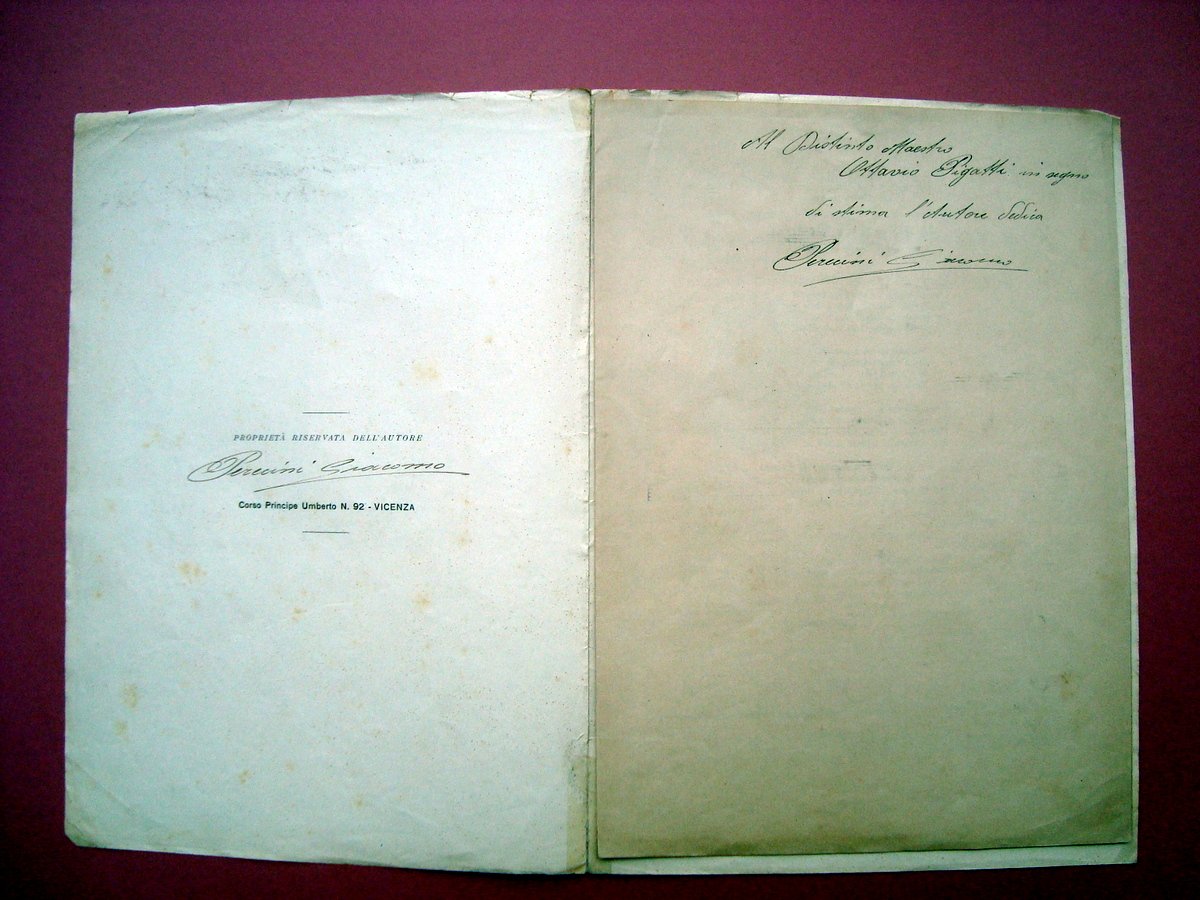 PROPRIETÀ RISERVATA DELL'AUTORE
Giacomo
Corso Principe Umberto N. 92 - VICENZA
Al Distinto Maestro
Ottavio Pigatti in segno
di stima l'Autore dedica
Giacomo